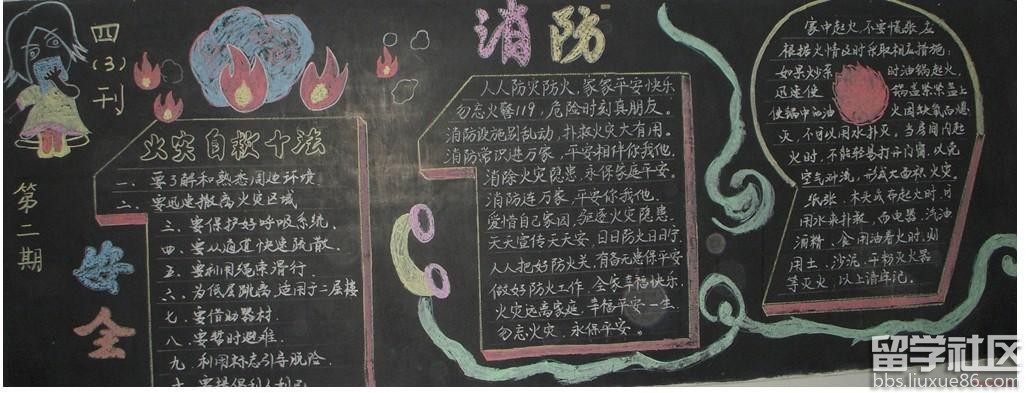 四(3)刊
第二期
安全
消防
火灾自救十法
一、要了解和熟悉周边环境
二、要迅速撤离火灾区域
三、要保护好呼吸系统.
四、要从通道快速疏散.
五、要利用绳索滑行.
六、为低层跳离,适用于二层楼
七、要借助器材.
八、要暂时避难.
九、利用标志引导脱险.
人人防灾防火,家家平安快乐
勿忘火警119,危险时刻真朋友.
消防设施别乱动,扑救火灾大有用.
消防常识进万家,平安相伴你我他.
消除火灾隐患,永保家庭平安.
消防连万家,平安你我他.
爱惜自己家园,驱逐火灾隐患.
天天宣传天天安,日日防火日日宁.
人人把好防火关,有备无患保平安
做好防火工作,全家幸福快乐.
火灾远离家庭,幸福平安一生
勿忘火灾,永保平安。
家中起火,不要慌张,应
根据火情及时采取相应措施:
如果炒菜时油锅起火,
迅速使锅盖紧盖上
使锅中的油火因缺氧而熄
灭,不可以用水扑灭.当房间内起
火时,不能轻易打开门窗,以免
空气对流,形成大面积火灾.
纸张、木头或布起火时,可
用水来扑救,而电器、汽油
酒精、食用油着火时,则
用土、沙泥、干粉灭火器
等灭火,以上请牢记.
留学社区
bbs.liuxue86.com